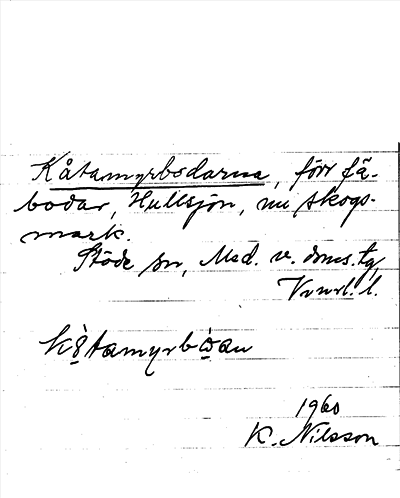 Kåtamyrbodarna, förr fä-
bodar, Hullsjön, nu skogs-
mark.
Stöde sn, Msd. v. doms.tg,
Vnrl. l.
kåtamyrbɷan
1960
K. Nilsson